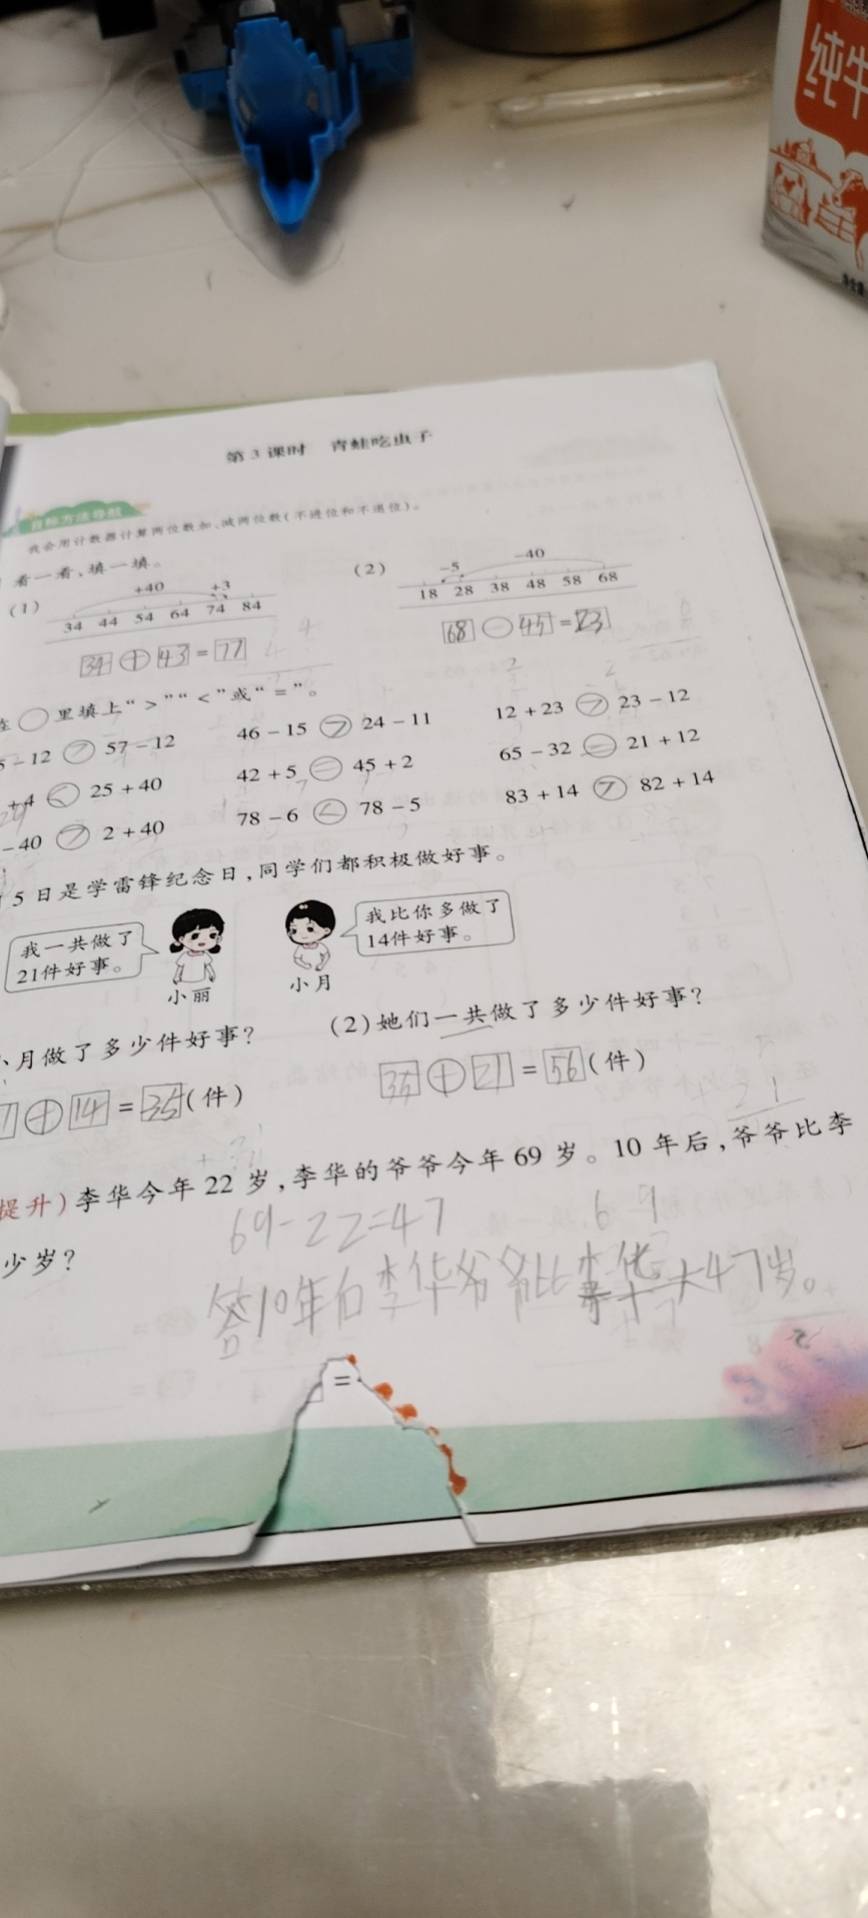 纯牛
第 3 课时 青蛙吃虫子
目标方法导航
我会用计数器计算两位数加、减两位数(不进位和不退位)。
看一看、填一填。
(1) +40 +3
34 44 54 64 74 84
34 + 43 = 77
(2) -5 -40
18 28 38 48 58 68
68 - 45 = 23
里填上“>”“<”或“=”。
-12 > 57-12 46-15 > 24-11 12+23 > 23-12
+4 < 25+40 42+5 = 45+2 65-32 = 21+12
-40 > 2+40 78-6 < 78-5 83+14 > 82+14
5日是学雷锋纪念日,同学们都积极做好事。
我一共做了
21件好事。
小丽
我比你多做了
14件好事。
小月
月做了多少件好事?
+ 14 = 35 (件)
(2)她们一共做了多少件好事?
35 + 21 = 56 (件)
提升)李华今年22岁,李华的爷爷今年69岁。10年后,爷爷比李
少岁?
69-22=47
6 9
答10年后李华爷爷比李华大47岁。
=